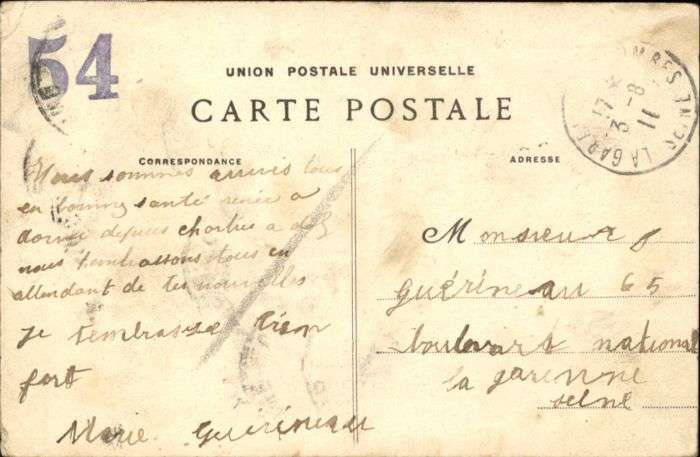 54
UNION POSTALE UNIVERSELLE
CARTE POSTALE
CORRESPONDANCE
Nous sommes arrivés tous
en bonne santé renée a
dormi depuis a
nous tembrassons tous en
attendant de tes nouvelles
je tembrasse bien
fort
Marie Guérineau
ADRESSE
Monsieur
guérineau 65
boulevart national
la garenne
seine
17
3-8
11
LA GARE